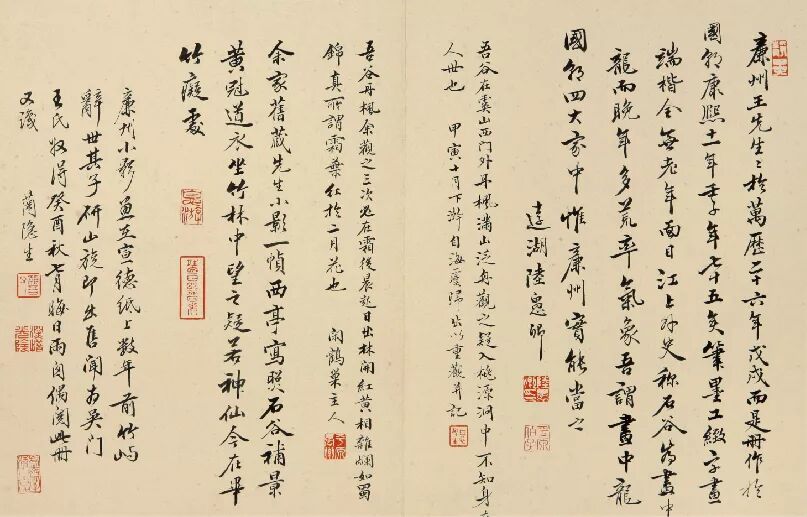 廉州王先生〻於萬歷二十六年戊戌而是冊作於
國朝康熙十一年壬子年七十五矣筆墨工緻字畫
端楷全無老年面目江上外史稱石谷為畫中
龍而晚年多荒率氣象吾謂畫中龍
國朝四大家中惟廉州實能當之
遠湖陸愚卿
吾谷在虞山西門外丹楓滿山泛舟觀之疑入桃源洞中不知身在
人世也 甲寅十月下澣自海虞歸出以重觀并記
吾谷丹楓余觀之三次必在霜後晨起日出林間紅黃相雜爛如蜀
錦真所謂霜葉紅於二月花也 閑鶴巢主人
余家舊藏先生小影一幀西亭寫照石谷補景
黃冠道衣坐竹林中望之疑若神仙今在畢
竹癡處
廉州小殤畫五宣德紙上數年前竹嶼
辭世其子研山旋即出售聞為吳門
王氏收得癸酉秋七月晦日雨窗偶閱此冊
又識 蘭隱生